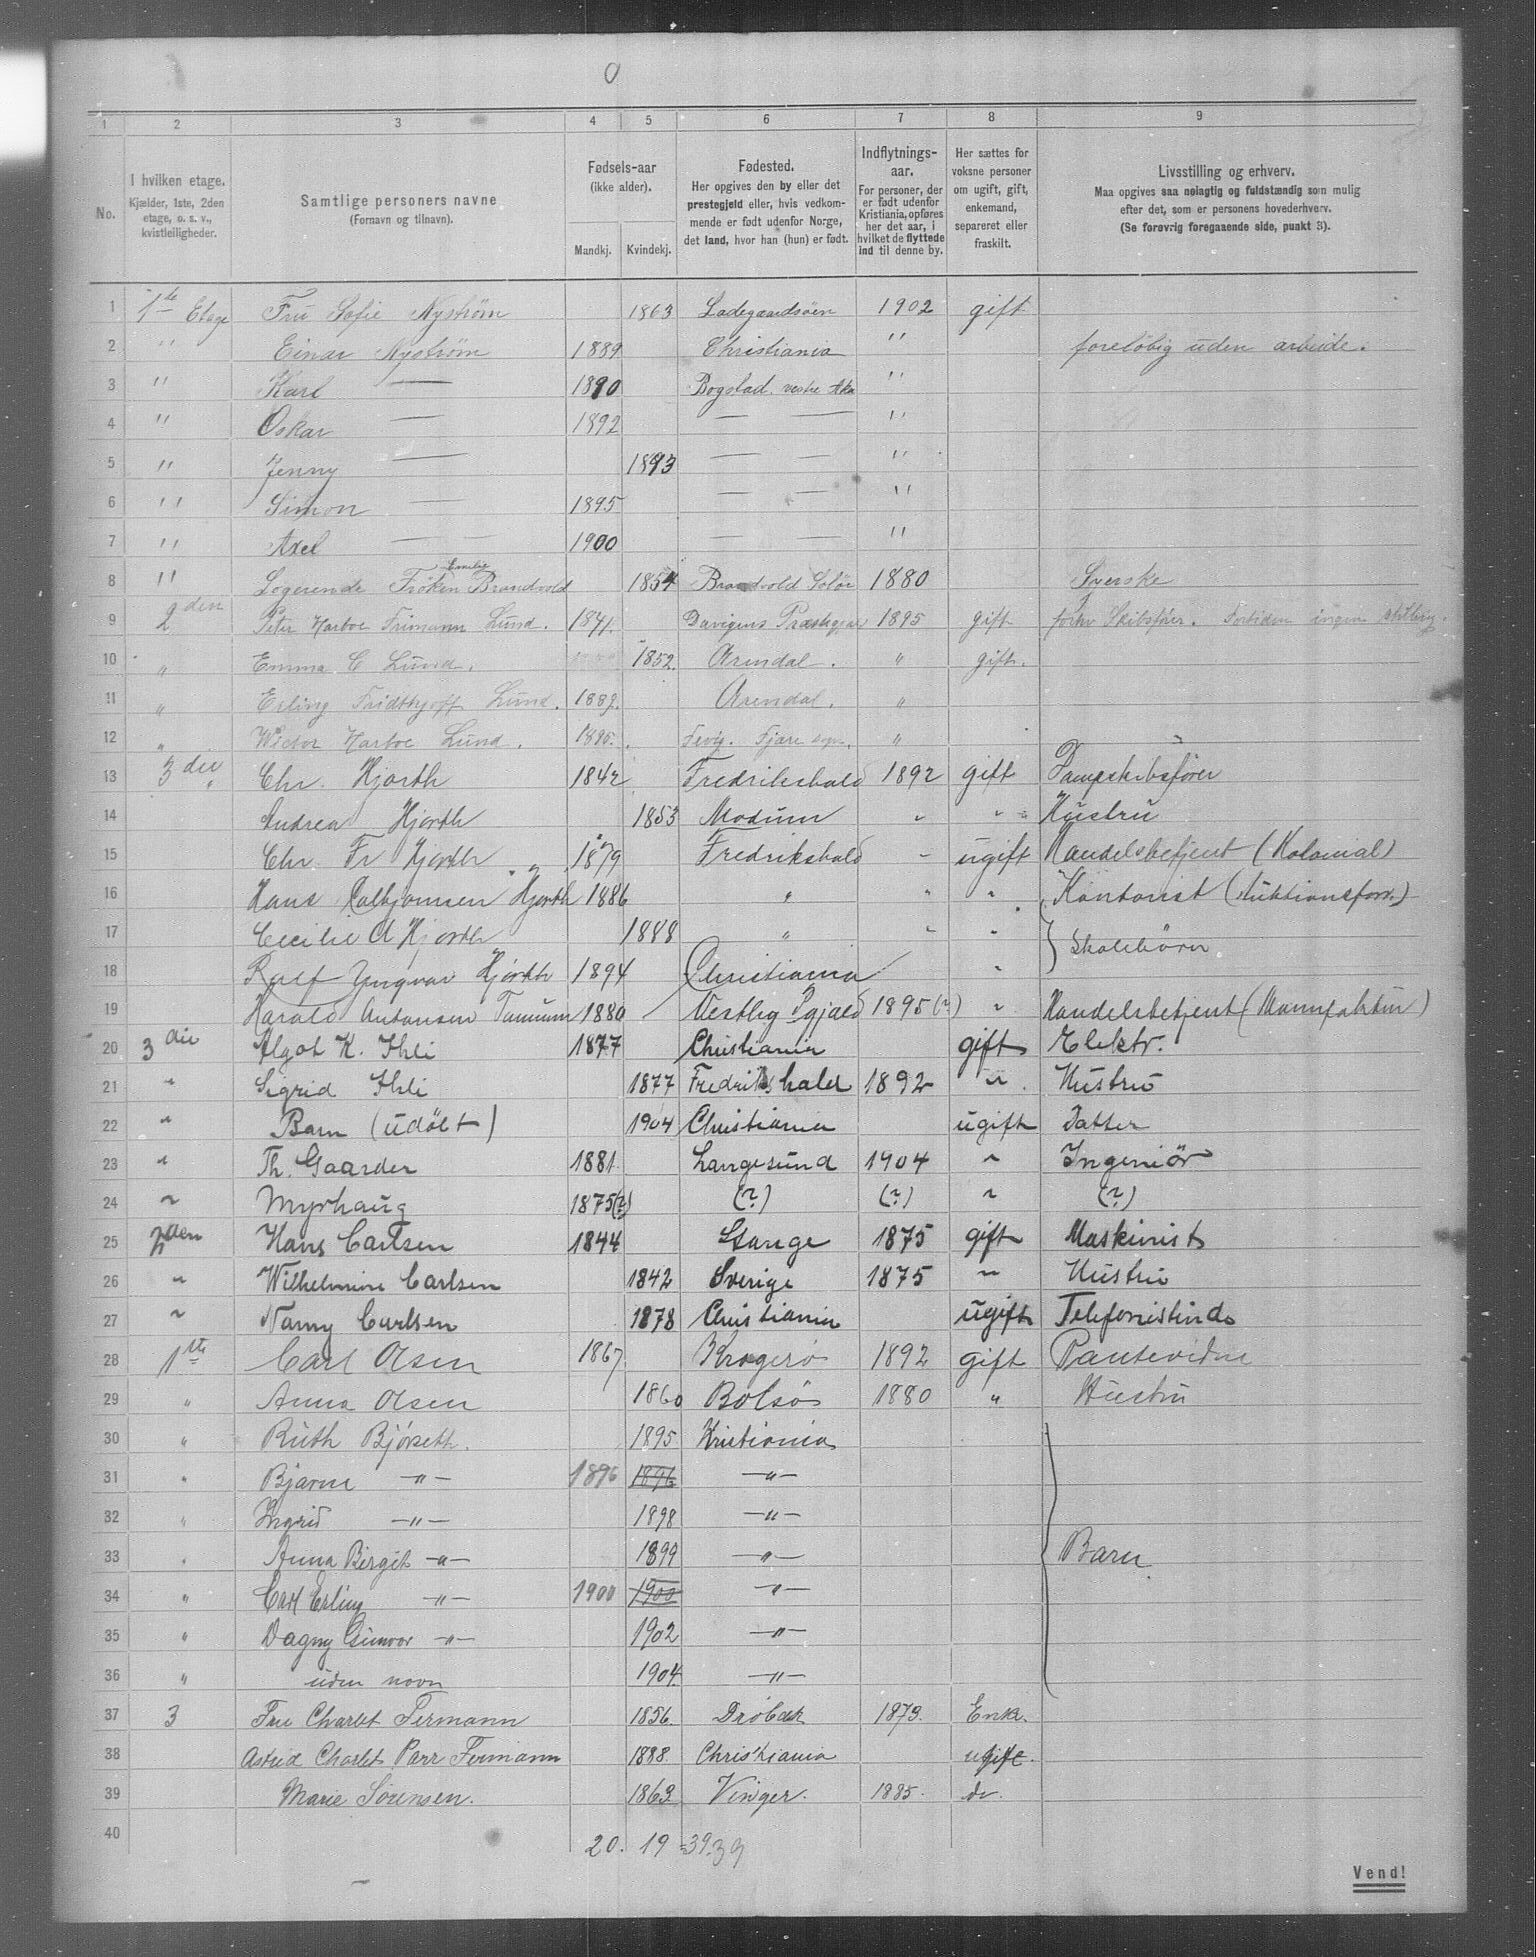 0
1 2 3 4 5 6 7 8 9
No.
I hvilken etage.
Kjælder, 1ste, 2den
etage, o. s. v.,
kvistleiligheder.
Samtlige personers navne
(Fornavn og tilnavn).
Fødsels-aar
(ikke alder).
Mandkj. Kvindekj.
Fødested.
Her opgives den by eller det
prestegjeld eller, hvis vedkom-
mende er født udenfor Norge,
det land, hvor han (hun) er født.
Indflytnings-
aar.
For personer, der
er født udenfor
Kristiania, opføres
her det aar, i
hvilket de flyttede
ind til denne by.
Her sættes for
voksne personer
om ugift, gift,
enkemand,
separeret eller
fraskilt.
Livsstilling og erhverv.
Maa opgives saa nøiagtig og fuldstændig som mulig
efter det, som er personens hovederhverv.
(Se forøvrig foregaaende side, punkt 3).
1 1ste Etage Fru Sofie Nyström 1863 Ladegaardsöen 1902 gift
2 " Einar Nyström 1889 Christiania " foreløbig uden arbeide.
3 " Karl — 1890 Bogstad. vestre Aker "
4 " Oskar — 1892 — — "
5 " Jenny — 1893 — — "
6 " Simon — 1895 — — "
7 " Axel — — 1900 — — "
8 " Logerende Frøken Emilie Brandvold 1854 Brandvold Solör 1880 Syerske
9 2den Peter Harboe Frimann Lund. 1841. 1895 gift forhv Skibsfører. Fortiden ingen stilling.
10 " Emma C Lund. 1852. Arendal. " gift.
11 " Erling Fridthjoff Lund. 1889. Arendal. "
12 " Victor Harboe Lund. 1895. Fevig. Fjære sogn. "
13 3die " Chr. Hjorth 1842 Fredrikshald 1892 gift Dampskibsfører
14 Andrea Hjorth 1853 Modum " " Hustru
15 Chr. Fr Hjorth " " 1879 Fredrikshald " ugift Handelsbetjent (Kolonial)
16 Hans Hjorth 1886 " " " Kontorist (Auktionsforr.)
17 Cecilie A Hjorth 1888 " " " } Skolebörn
18 Rolf Yngvar Hjorth 1894 Christiania "
19 Harald Antonsen Tanum 1880 Vestby Pgjæld 1895 (?) " Handelsbetjent (Mannfaktur)
20 3die Algot K. Ihli 1877 Christiania gift Elektr.
21 " Sigrid Ihli 1877 Fredrikshald 1892 " Hustru
22 " Barn (udöbt) 1904 Christiania ugift Datter
23 " Th. Gaarder 1881 Langesund 1904 " Ingeniör
24 " Myrhaug 1875(?) (?) (?) " (?)
25 2den Hans Carlsen 1844 Stange 1875 gift Maskinist
26 " Wilhelmine Carlsen 1842 Sverige 1875 " Hustru
27 " Nanny Carlsen 1878 Christiania ugift Telefonistinde
28 1ste Carl Olsen 1867 Kragerø 1892 gift
29 " Anna Olsen 1860 Bolsø 1880 " Hustru
30 " Ruth Bjørseth. 1895 Kristiania
31 " Bjarne —"— 1896 1896 —"—
32 " Ingrid —"— 1898 —"—
33 " Anna Birgit —"— 1899 —"— Barn
34 " Carl Erling —"— 1900 1900 —"—
35 " Dagny Gunvor —"— 1902 —"—
36 " uden navn 1904. —"—
37 3 Fru Charlot Fermann 1856. Drøbak 1873. Enke.
38 Astrid Charlot Parr Fermann 1888. Christiania ugift.
39 Marie Sørensen. 1863 Vinger. 1885. do.
40
20. 19 =39.39
Vend!